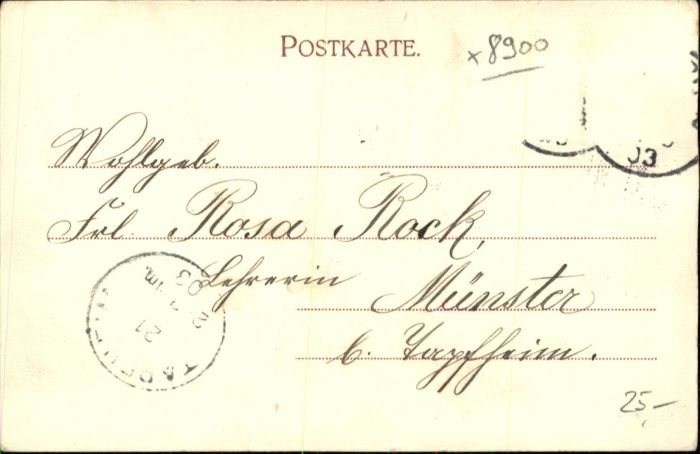 POSTKARTE.
x 8900
03
Wohlgeb.
Frl Rosa Rock,
Lehrerin
Münster
b. Tapfheim.
21
03
25,-